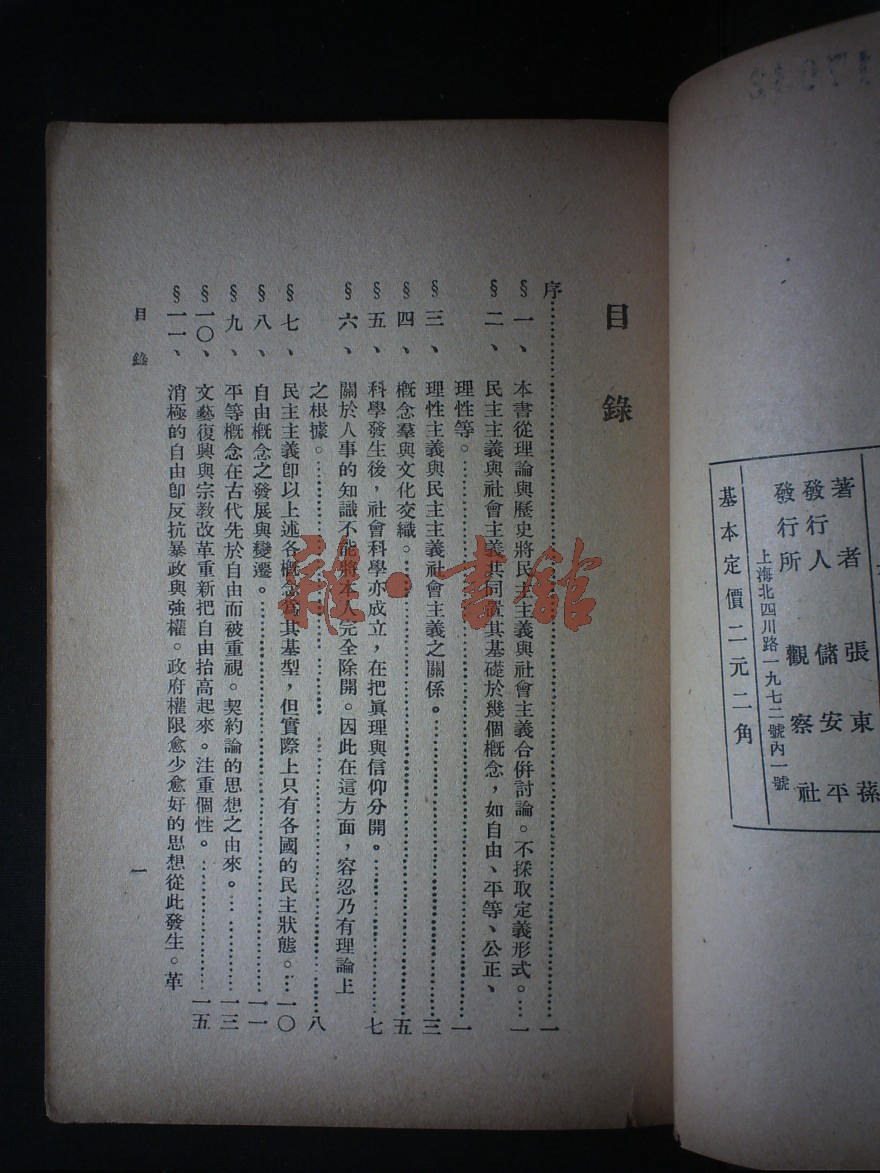 著者 張東蓀
發行人 儲安平
發行所 觀察社
上海北四川路一九七二號內一號
基本定價二元二角
目錄
序……一
§一、本書從理論與歷史將民主主義與社會主義合併討論。不採取定義形式。…一
§二、民主主義與社會主義共同置其基礎於幾個概念，如自由、平等、公正、
理性等。……一
§三、理性主義與民主主義社會主義之關係。……三
§四、概念羣與文化交織。……五
§五、科學發生後，社會科學亦成立，在把眞理與信仰分開。……七
§六、關於人事的知識不能將本人完全除開。因此在這方面，容忍乃有理論上
之根據。……八
§七、民主主義卽以上述各概念爲其基型，但實際上只有各國的民主狀態。…一〇
§八、自由概念之發展與變遷。……一一
§九、平等概念在古代先於自由而被重視。契約論的思想之由來。……一三
§一〇、文藝復興與宗教改革重新把自由抬高起來。注重個性。……一五
§一一、消極的自由卽反抗暴政與強權。政府權限愈少愈好的思想從此發生。革
目錄
一
雜·書館